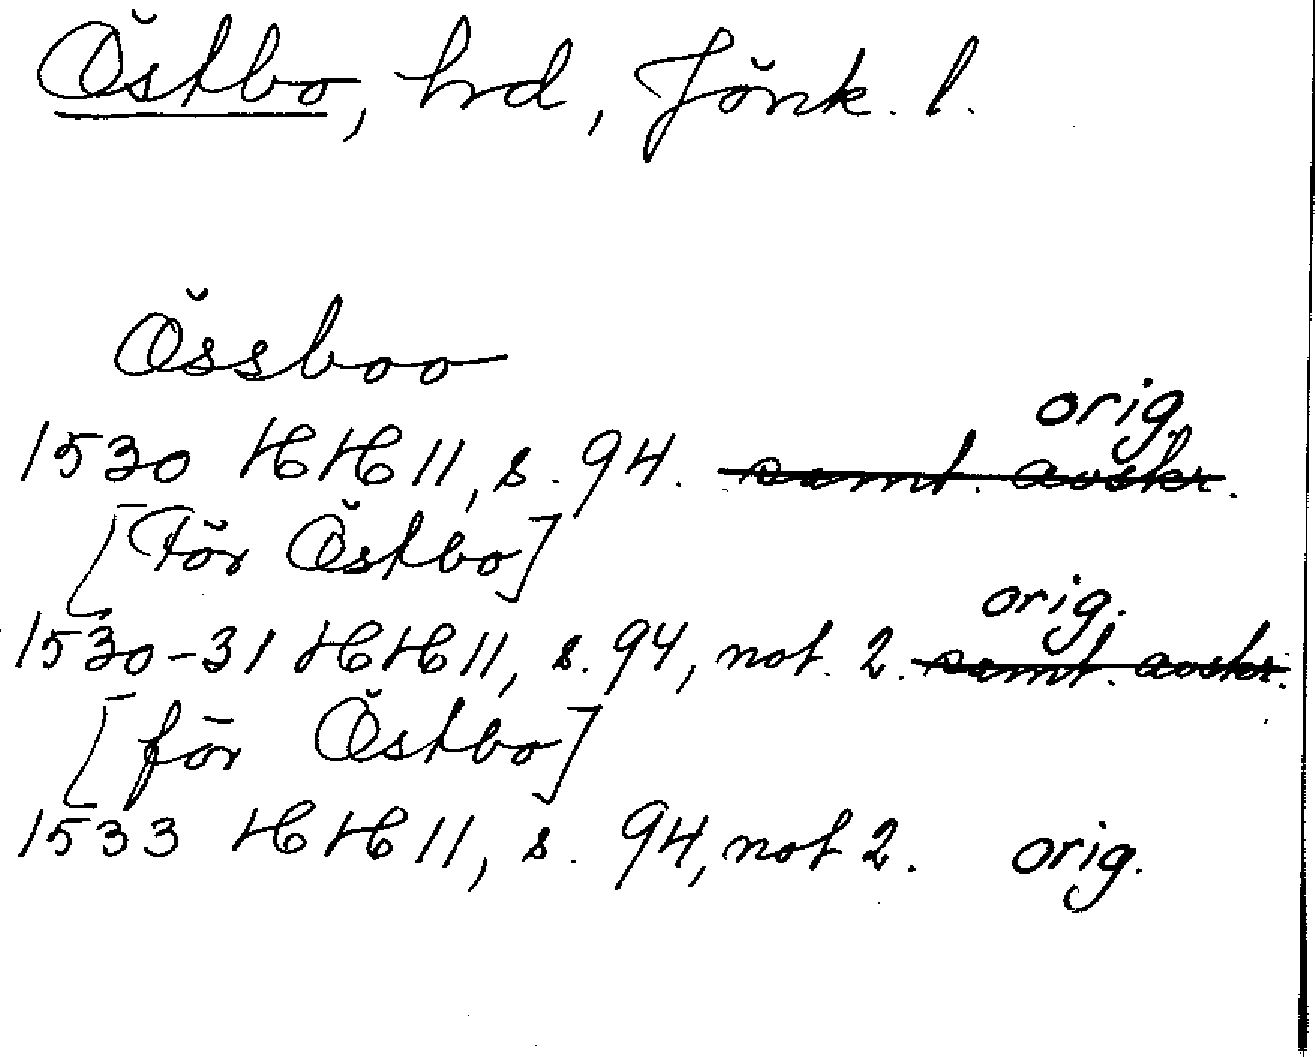 Östbo, hrd, Jönk. l.
Össboo
orig.
1530 HH 11, s. 94. samt. avskr.
[För Östbo]
orig.
1530-31 HH 11, s. 94, not 2. samt. avskr.
[för Östbo]
1533 HH 11, s. 94, not 2. orig.